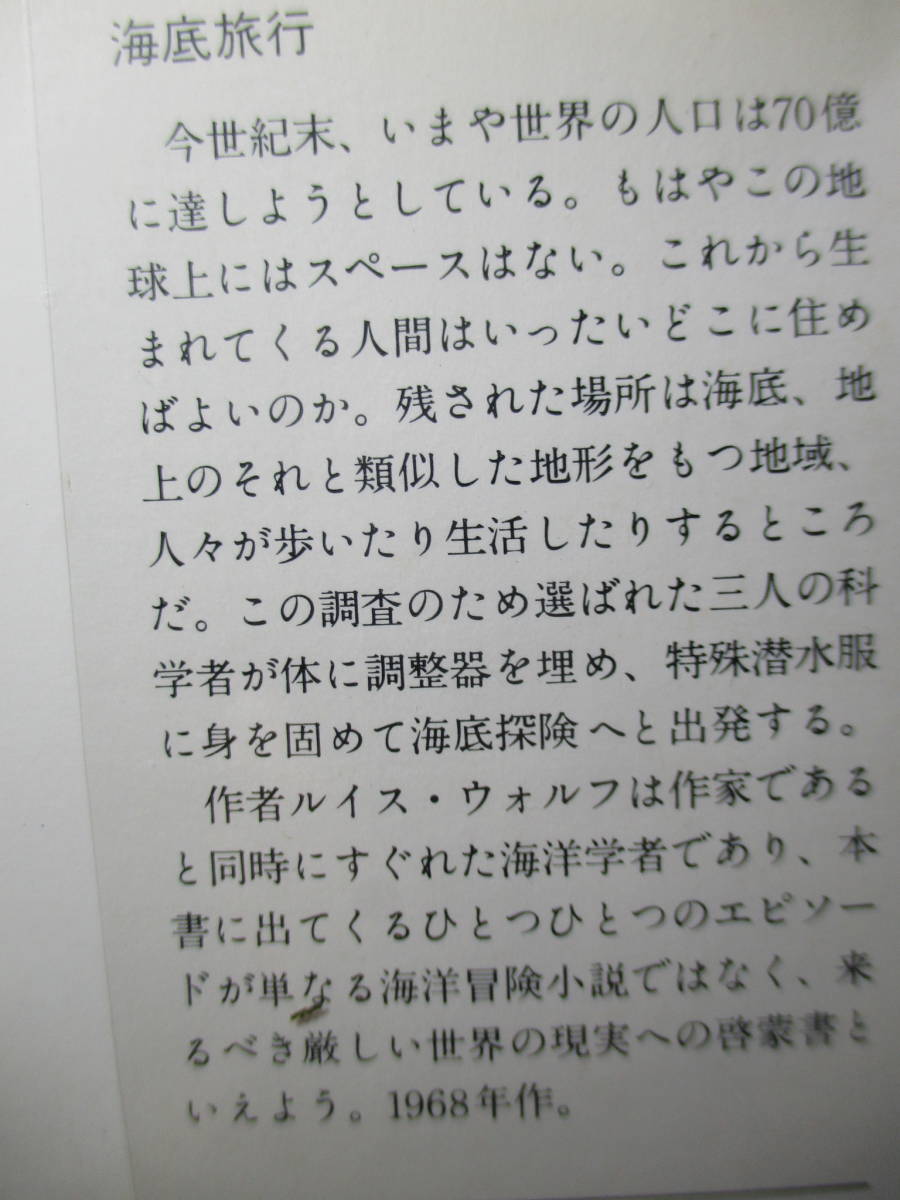 海底旅行
今世紀末、いまや世界の人口は70億
に達しようとしている。もはやこの地
球上にはスペースはない。これから生
まれてくる人間はいったいどこに住め
ばよいのか。残された場所は海底、地
上のそれと類似した地形をもつ地域、
人々が歩いたり生活したりするところ
だ。この調査のため選ばれた三人の科
学者が体に調整器を埋め、特殊潜水服
に身を固めて海底探険へと出発する。
作者ルイス・ウォルフは作家である
と同時にすぐれた海洋学者であり、本
書に出てくるひとつひとつのエピソー
ドが単なる海洋冒険小説ではなく、来
るべき厳しい世界の現実への啓蒙書と
いえよう。1968年作。